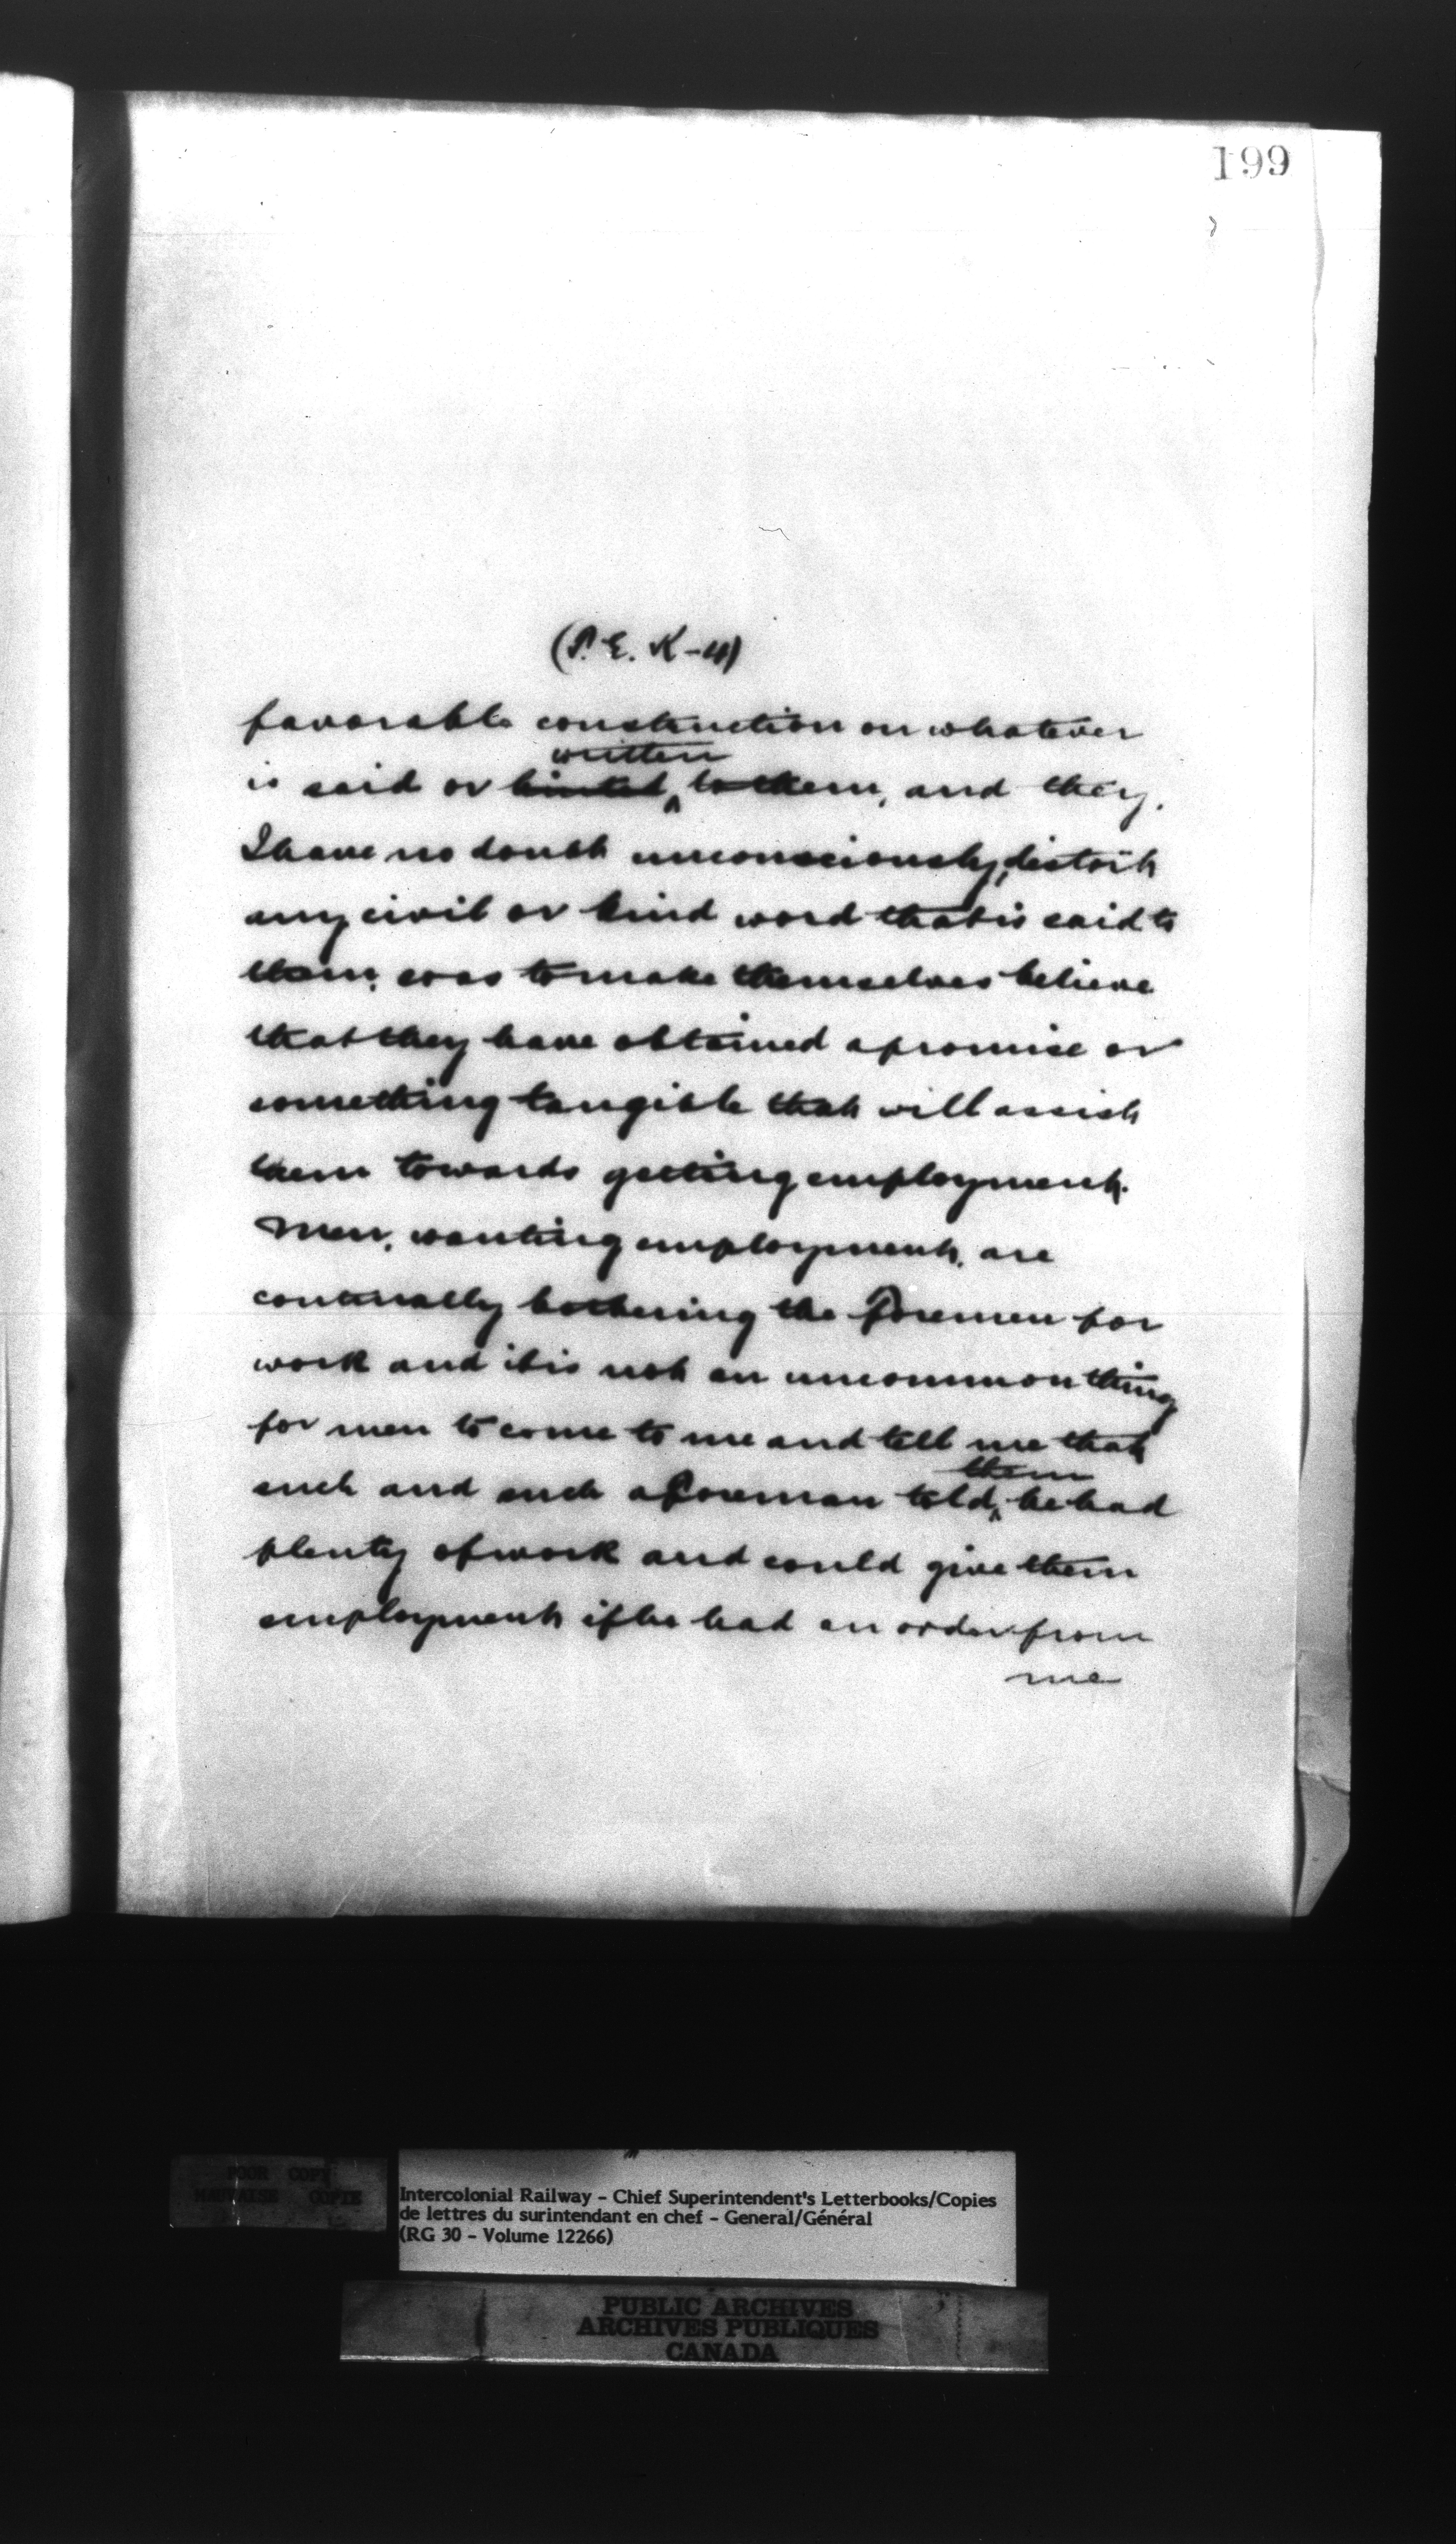 199
(P. E. K-4)
favorable construction on whatever
written
is said or hinted to them, and they,
I have no doubt unconsciously, distort
any civil or kind word that is said to
them, so as to make themselves believe
that they have obtained a promise or
something tangible that will assist
them towards getting employment.
Men, wanting employment, are
continually bothering the Foremen for
work and it is not an uncommon thing
for men to come to me and tell me that
them
such and such a Foreman told he had
plenty of work and could give them
employment if he had an order from
me
POOR COPY
MAUVAISE COPIE
Intercolonial Railway - Chief Superintendent's Letterbooks/Copies
de lettres du surintendant en chef - General/Général
(RG 30 - Volume 12266)
PUBLIC ARCHIVES
ARCHIVES PUBLIQUES
CANADA